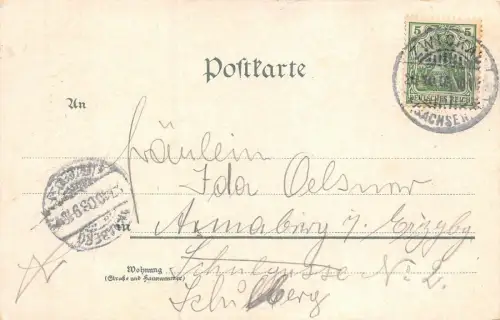 5 5
ZWICKAU
DEUTSCHES REICH
SACHSEN
Postkarte
An
Fräulein
Ida Oelsner
Annaberg i/ Erzgbg
in
Schulgasse No 2.
Wohnung
(Straße und Hausnummer)
Schulberg